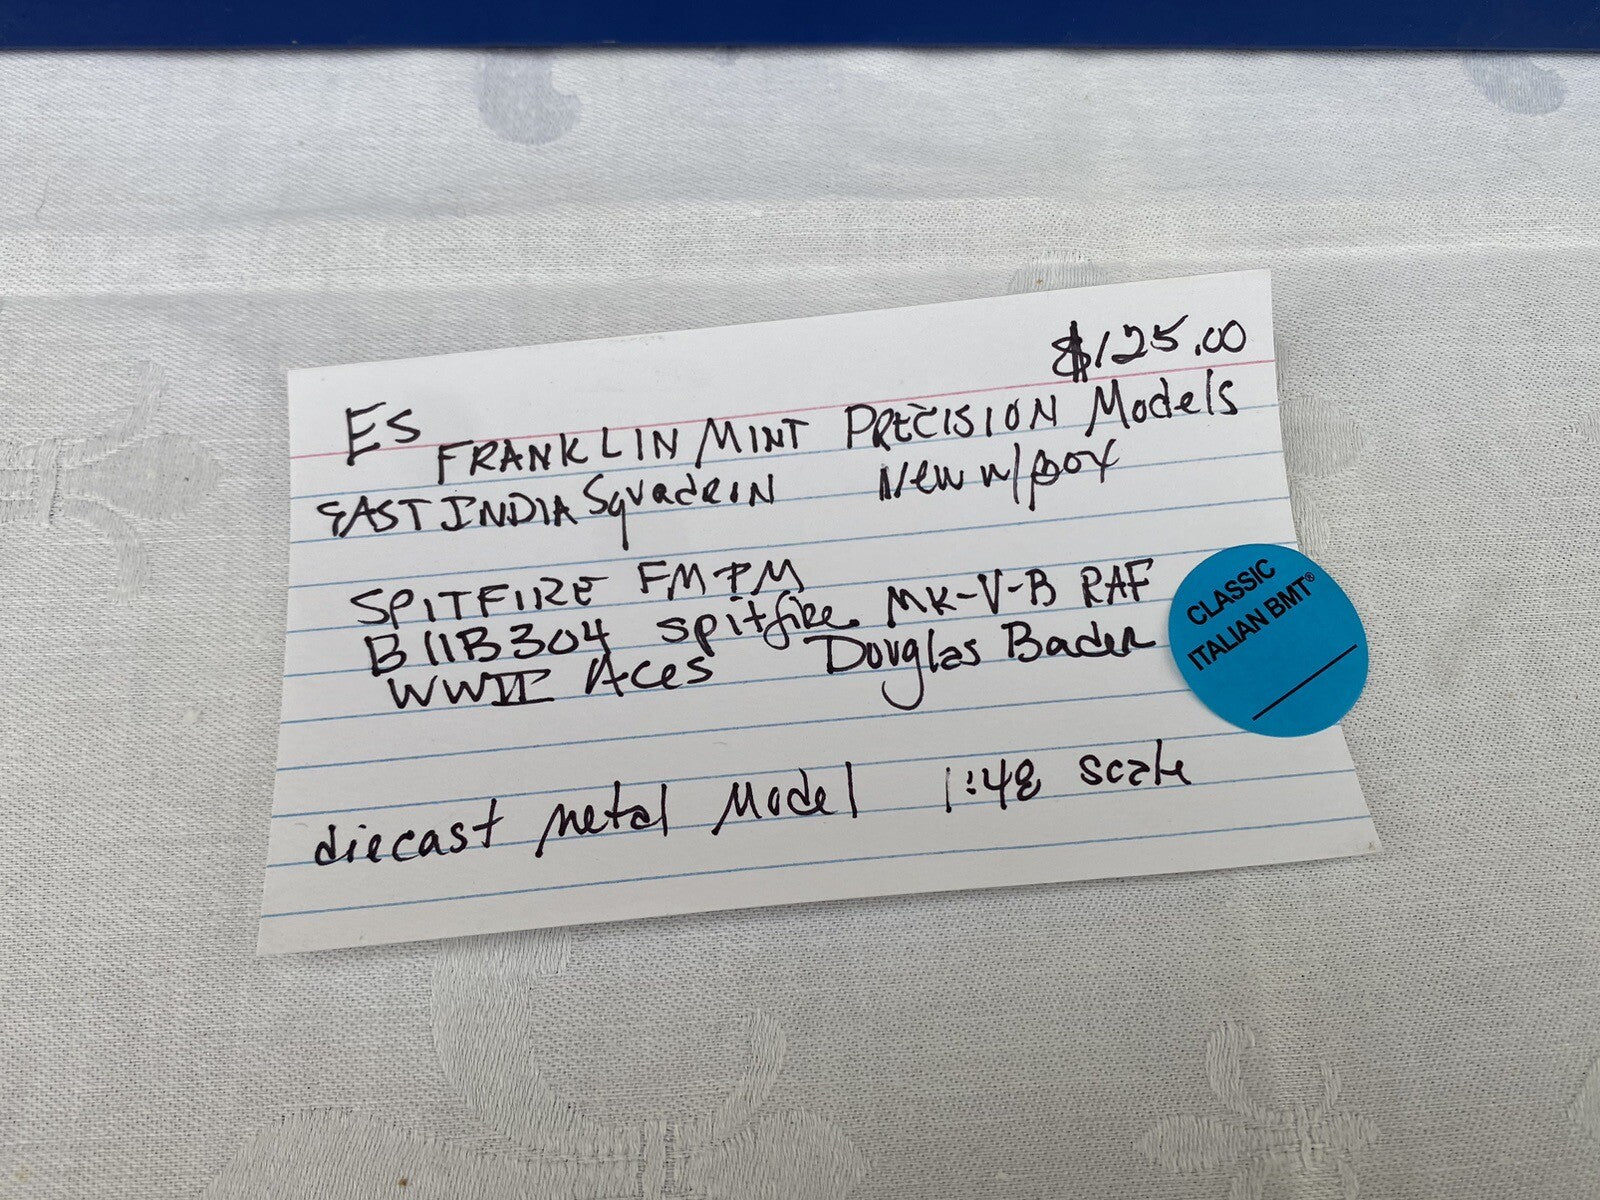 $125.00
ES
FRANKLIN MINT PRECISION Models
EAST INDIA Squadron New w/box
SPITFIRE FMPM
B11B304 spitfire MK-V-B RAF
WWII Aces Douglas Bader
diecast metal Model 1:48 scale
CLASSIC
ITALIAN BMT®